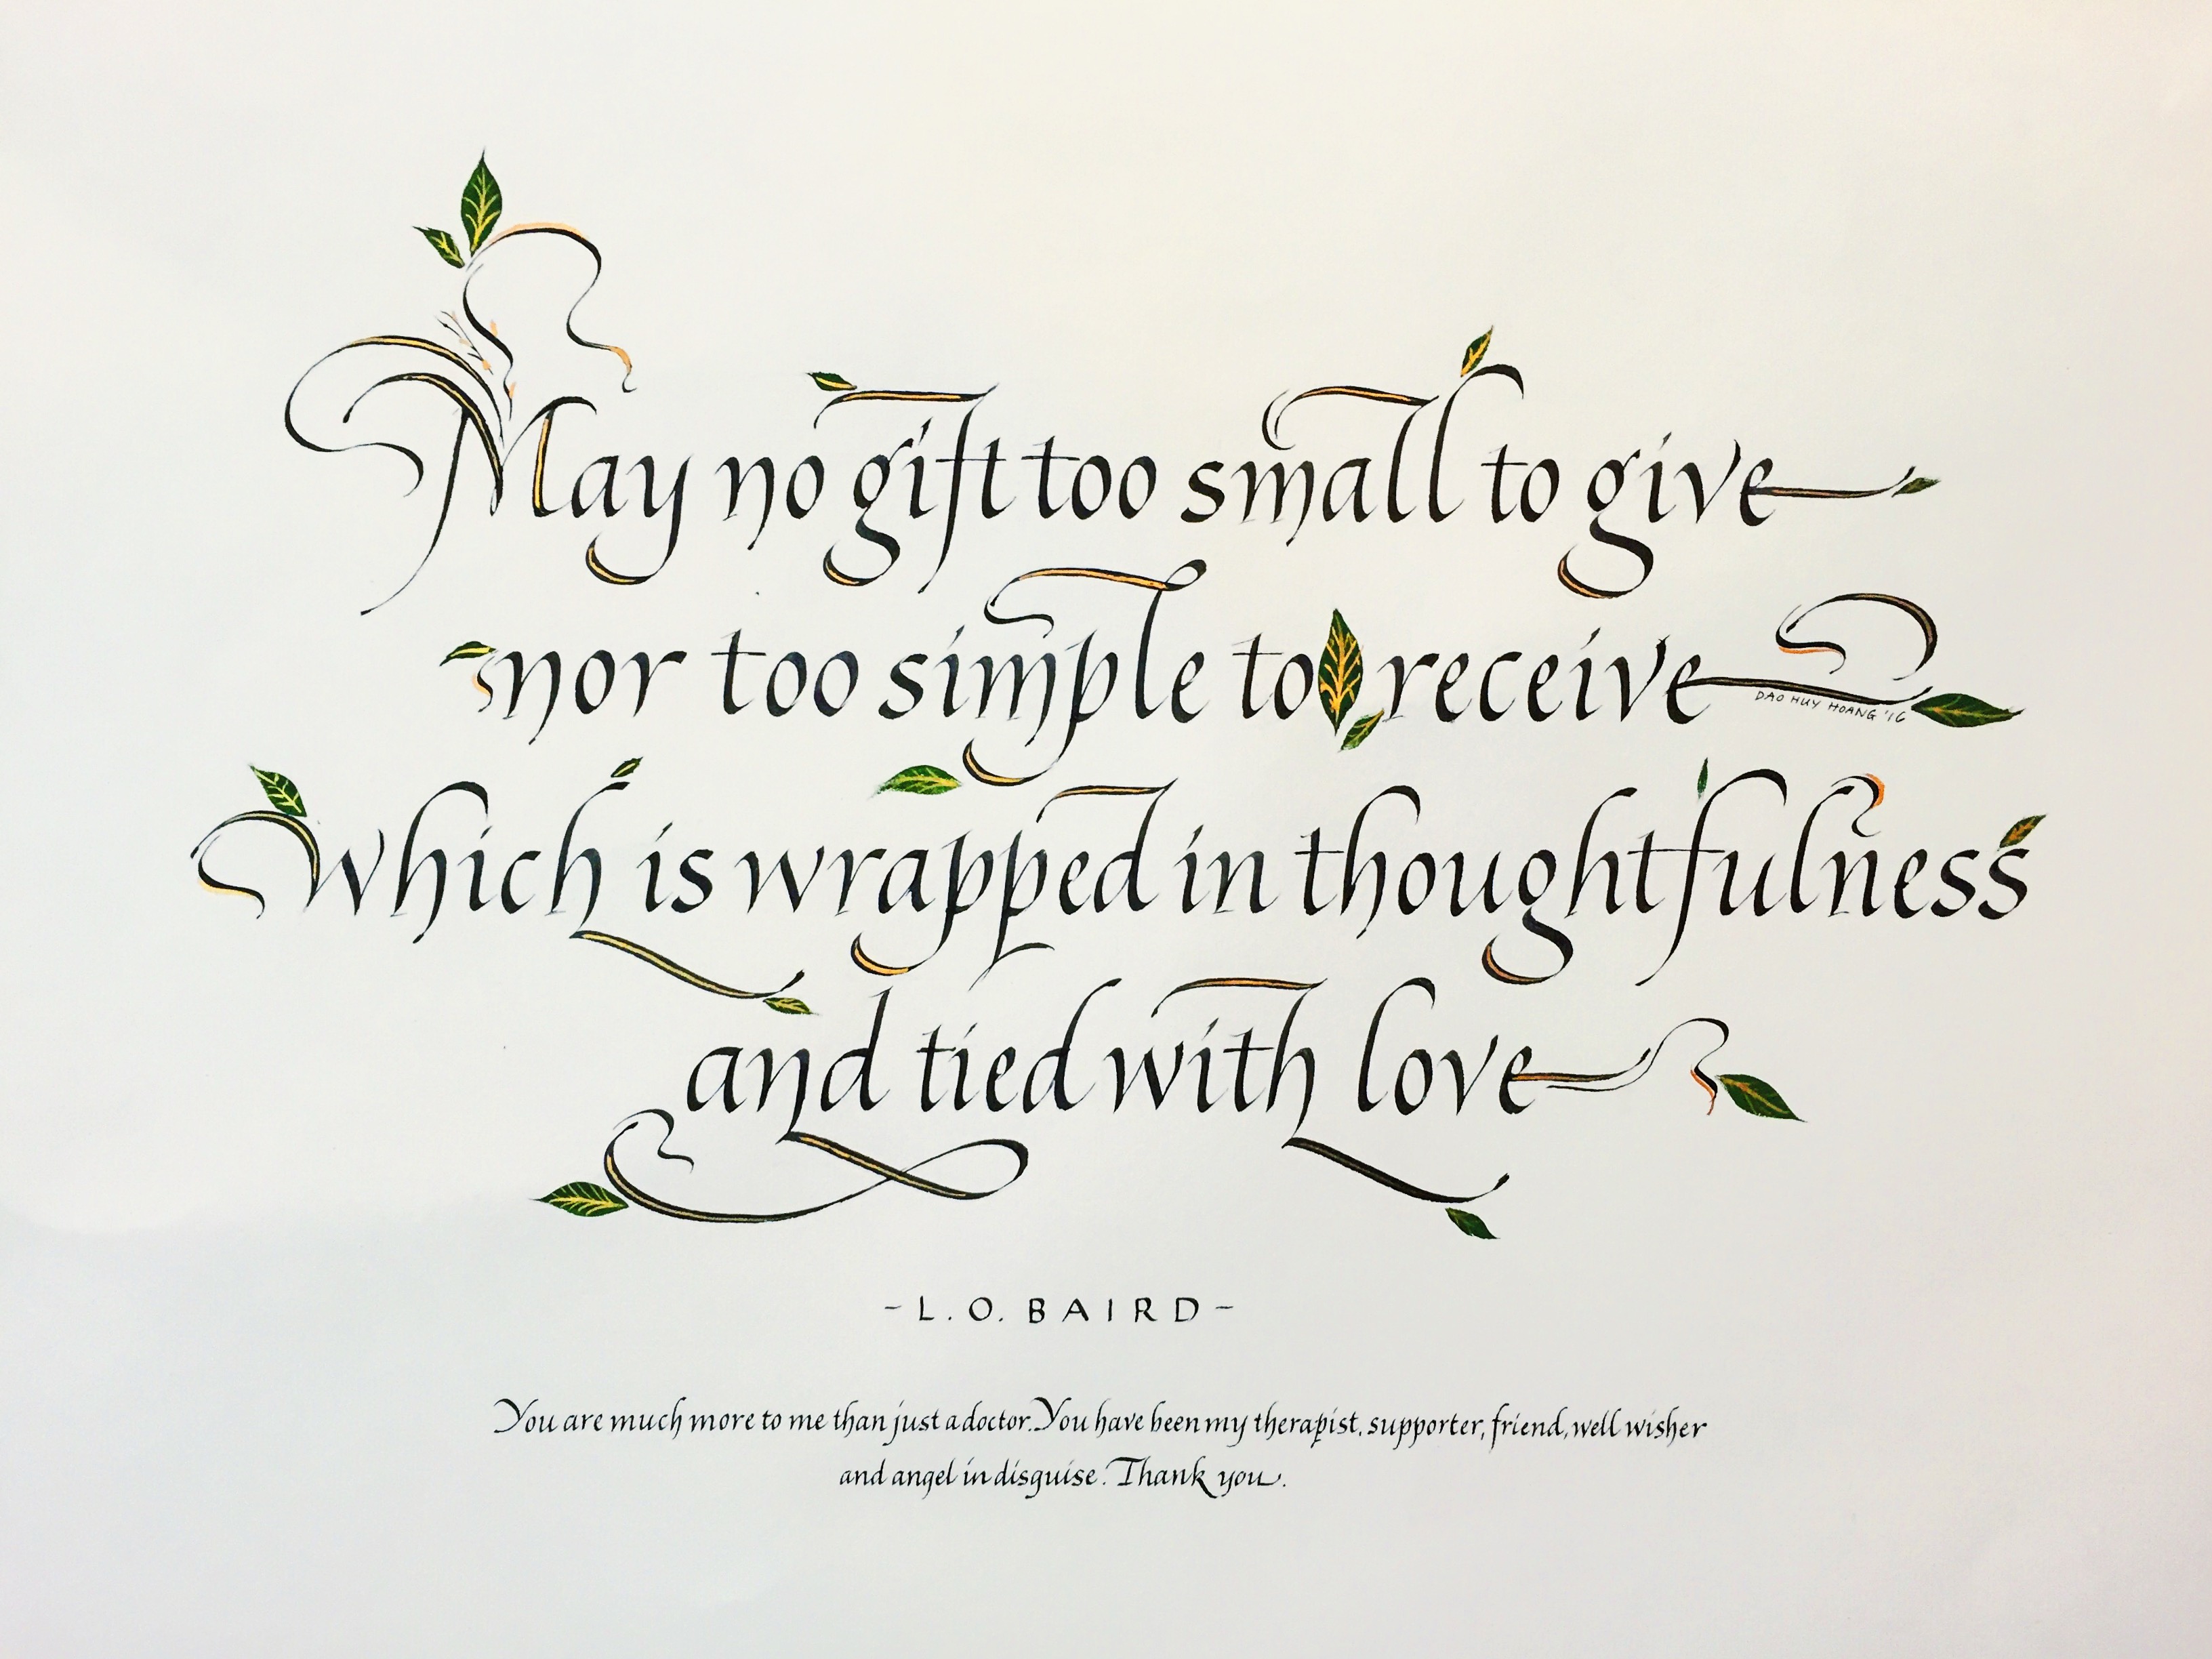 May no gift too small to give
nor too simple to receive
DAO HUY HOANG '16
Which is wrapped in thoughtfulness
and tied with love
- L. O. BAIRD -
You are much more to me than just a doctor. You have been my therapist, supporter, friend, well wisher
and angel in disguise. Thank you.